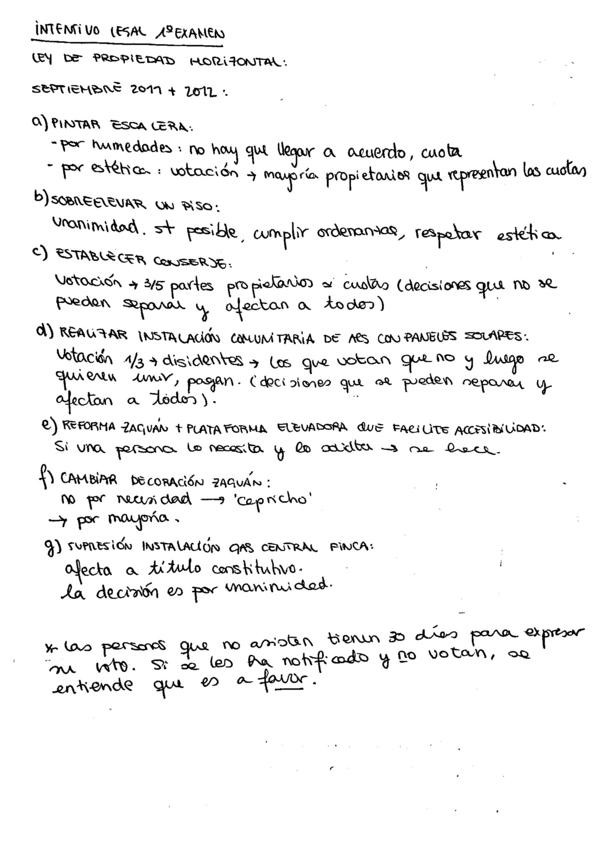 INTENSIVO LEGAL 1º EXAMEN
LEY DE PROPIEDAD HORIZONTAL:
SEPTIEMBRE 2011 + 2012:
a) PINTAR ESCALERA:
- por humedades: no hay que llegar a acuerdo, cuota
- por estética: votación → mayoría propietarios que representan las cuotas
b) SOBREELEVAR UN PISO:
unanimidad. st posible, cumplir ordenanzas, respetar estética
c) ESTABLECER CONSERJE:
Votación → 3/5 partes propietarios x cuotas (decisiones que no se
pueden separar y afectan a todos)
d) REALIZAR INSTALACIÓN COMUNITARIA DE ACS CON PANELES SOLARES:
Votación 1/3 → disidentes → los que votan que no y luego se
quieren unir, pagan. (decisiones que se pueden separar y
afectan a todos).
e) REFORMA ZAGUÁN + PLATAFORMA ELEVADORA QUE FACILITE ACCESIBILIDAD:
Si una persona lo necesita y lo → se hace.
f) CAMBIAR DECORACIÓN ZAGUÁN:
no por necesidad → 'capricho'
→ por mayoría.
g) SUPRESIÓN INSTALACIÓN GAS CENTRAL FINCA:
afecta a título constitutivo.
la decisión es por unanimidad.
* las personas que no asisten tienen 30 días para expresar
su voto. Si se les ha notificado y no votan, se
entiende que es a favor.